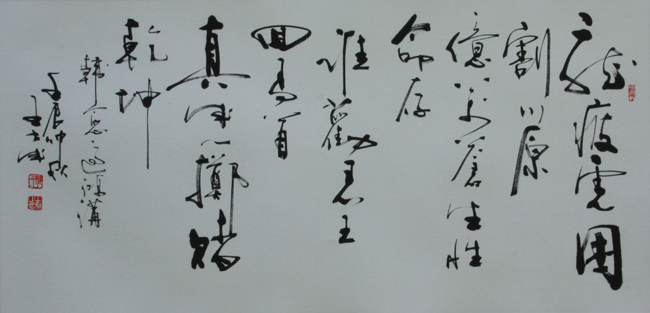 龍疲虎困
割川原
億万蒼生性
命存
誰勸君王
回馬首
真成一擲賭
乾坤
韓愈之過鴻溝
壬辰仲秋